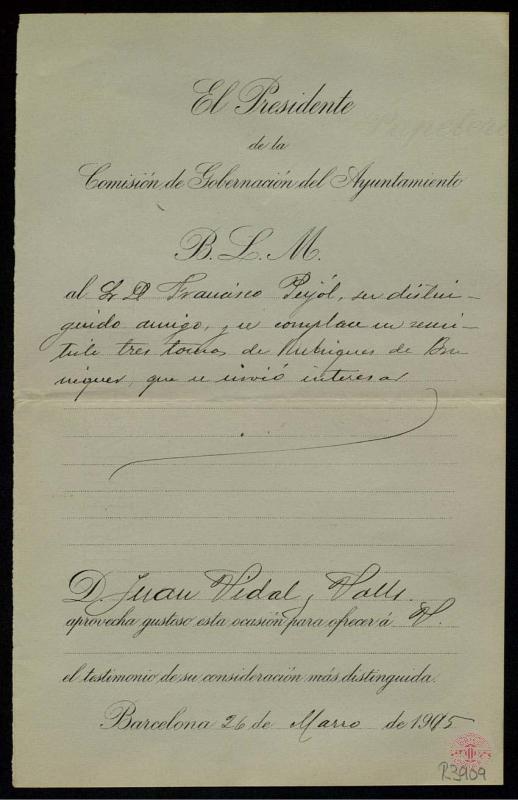 El Presidente
de la
Comisión de Gobernación del Ayuntamiento
B. L. M.
al Sr D Francisco Pujól, su distin-
guido amigo, y se complace en remi-
tirle tres tomos de Rubriques de Bru
niquer, que se sirvió interesar
D. Juan Vidal y Valls.
aprovecha gustoso esta ocasión para ofrecer á V.
el testimonio de su consideración más distinguida.
Barcelona 26 de Marzo de 1915
R3909